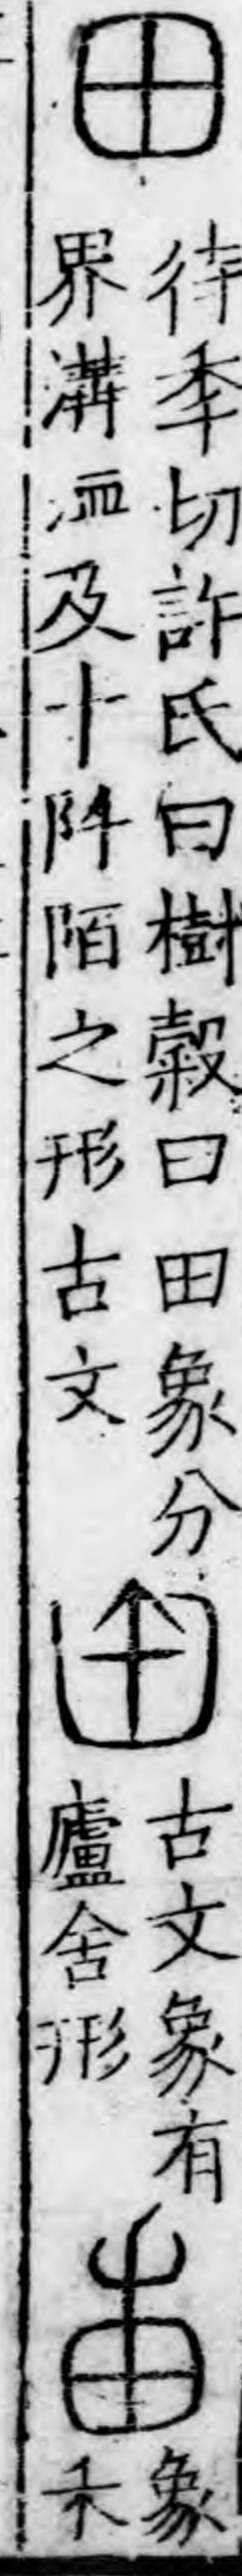 田
待季切許氏曰樹穀曰田象分
界溝洫及十阡陌之形古文
古文象有
廬舍形
象
禾